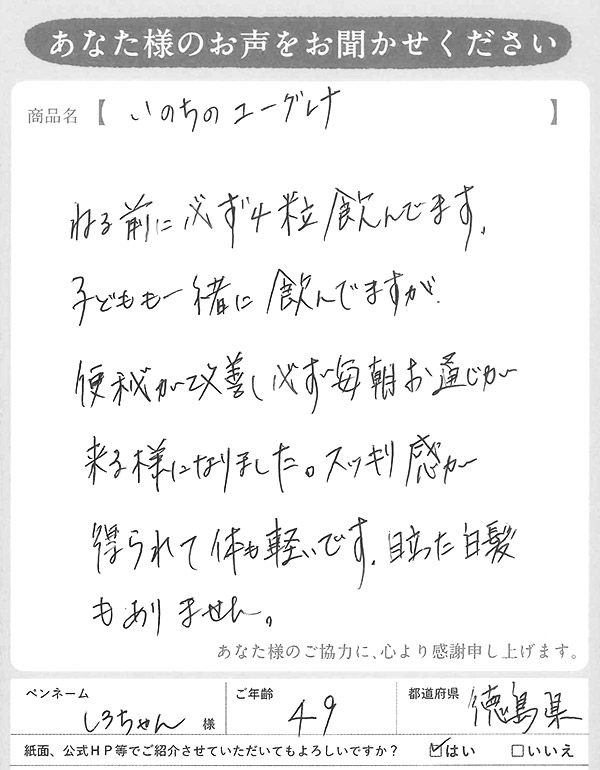 あなた様のお声をお聞かせください
商品名【いのちのユーグレナ】
ねる前に必ず4粒飲んでます。
子どもも一緒に飲んでますが、
便秘が改善し必ず毎朝お通じが
来る様になりました。スッキリ感が
得られて体も軽いです。目立った白髪
もありません。
あなた様のご協力に、心より感謝申し上げます。
ペンネーム しろちゃん 様 ご年齢 49 都道府県 徳島県
紙面、公式HP等でご紹介させていただいてもよろしいですか? ☑はい □いいえ